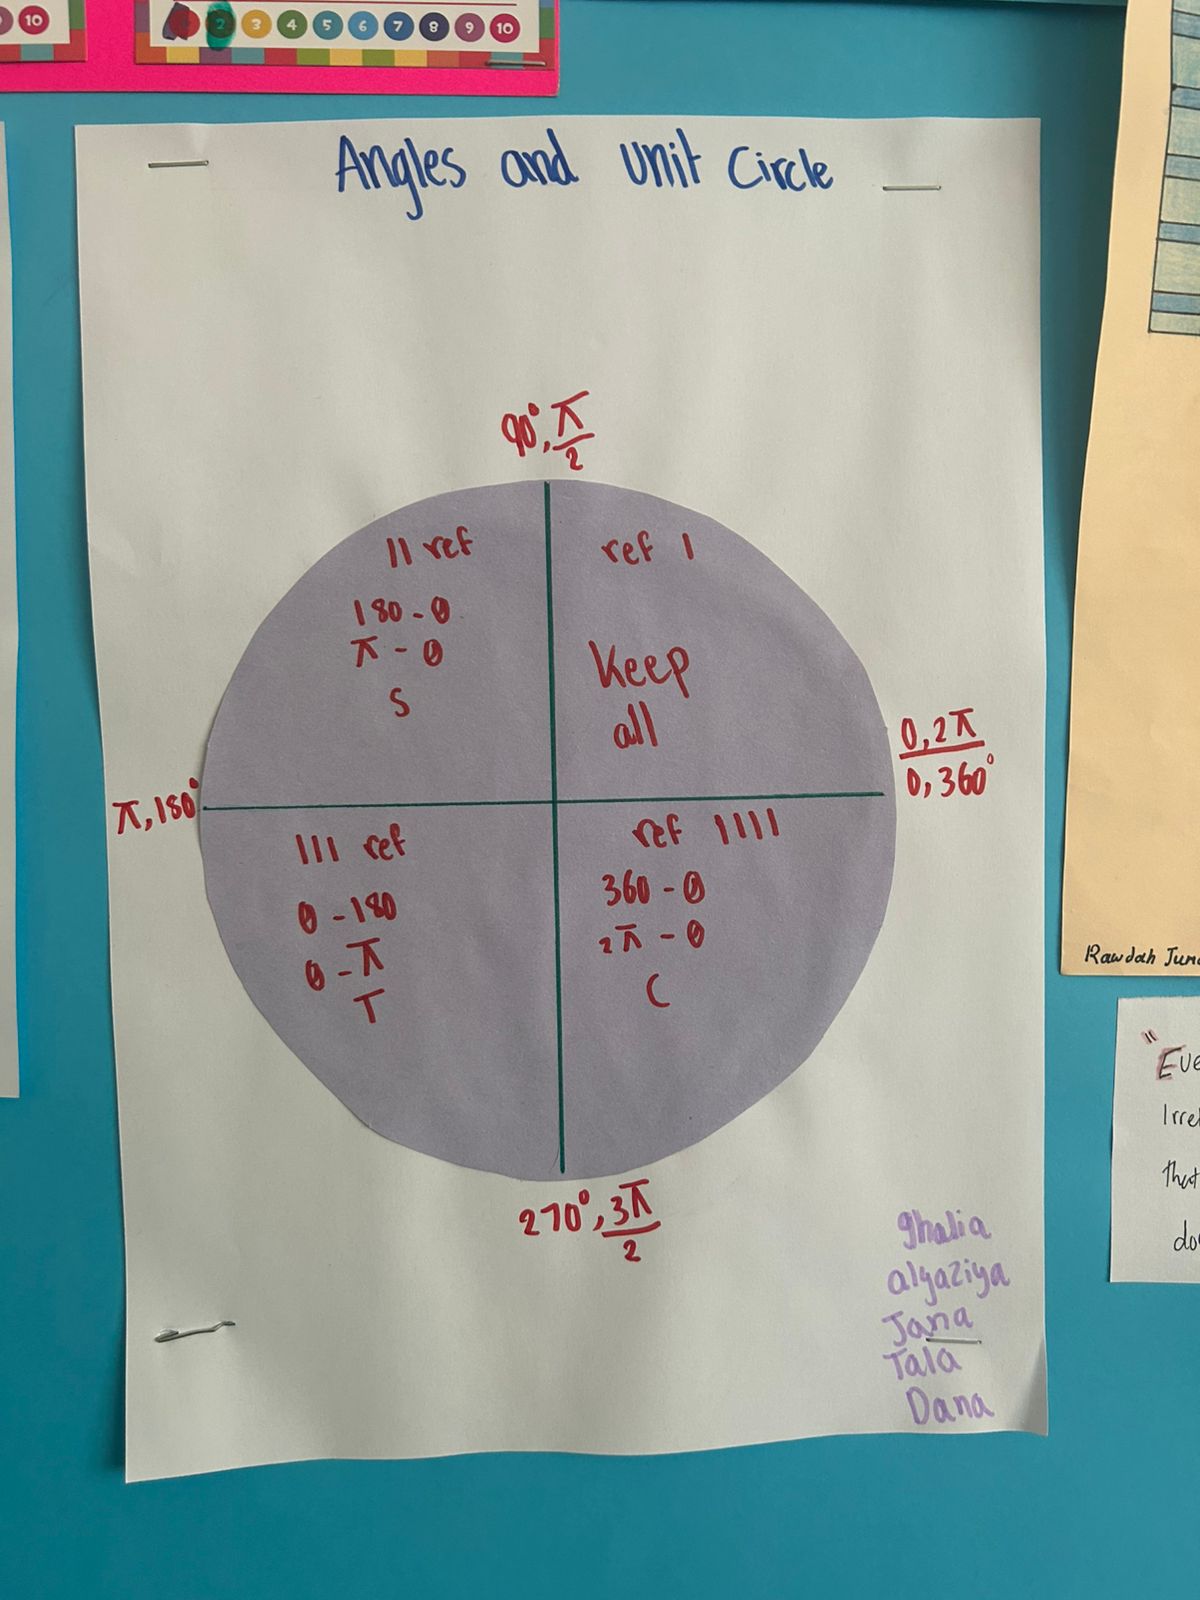 10
2 3 4 5 6 7 8 9 10
Angles and Unit Circle
90°, π/2
II ref
180 - θ
π - θ
S
ref I
Keep
all
π, 180°
0, 2π
0, 360°
III ref
θ - 180
θ - π
T
ref IIII
360 - θ
2π - θ
C
270°, 3π/2
ghalia
algaziya
Jana
Tala
Dana
Rawdah
"
do